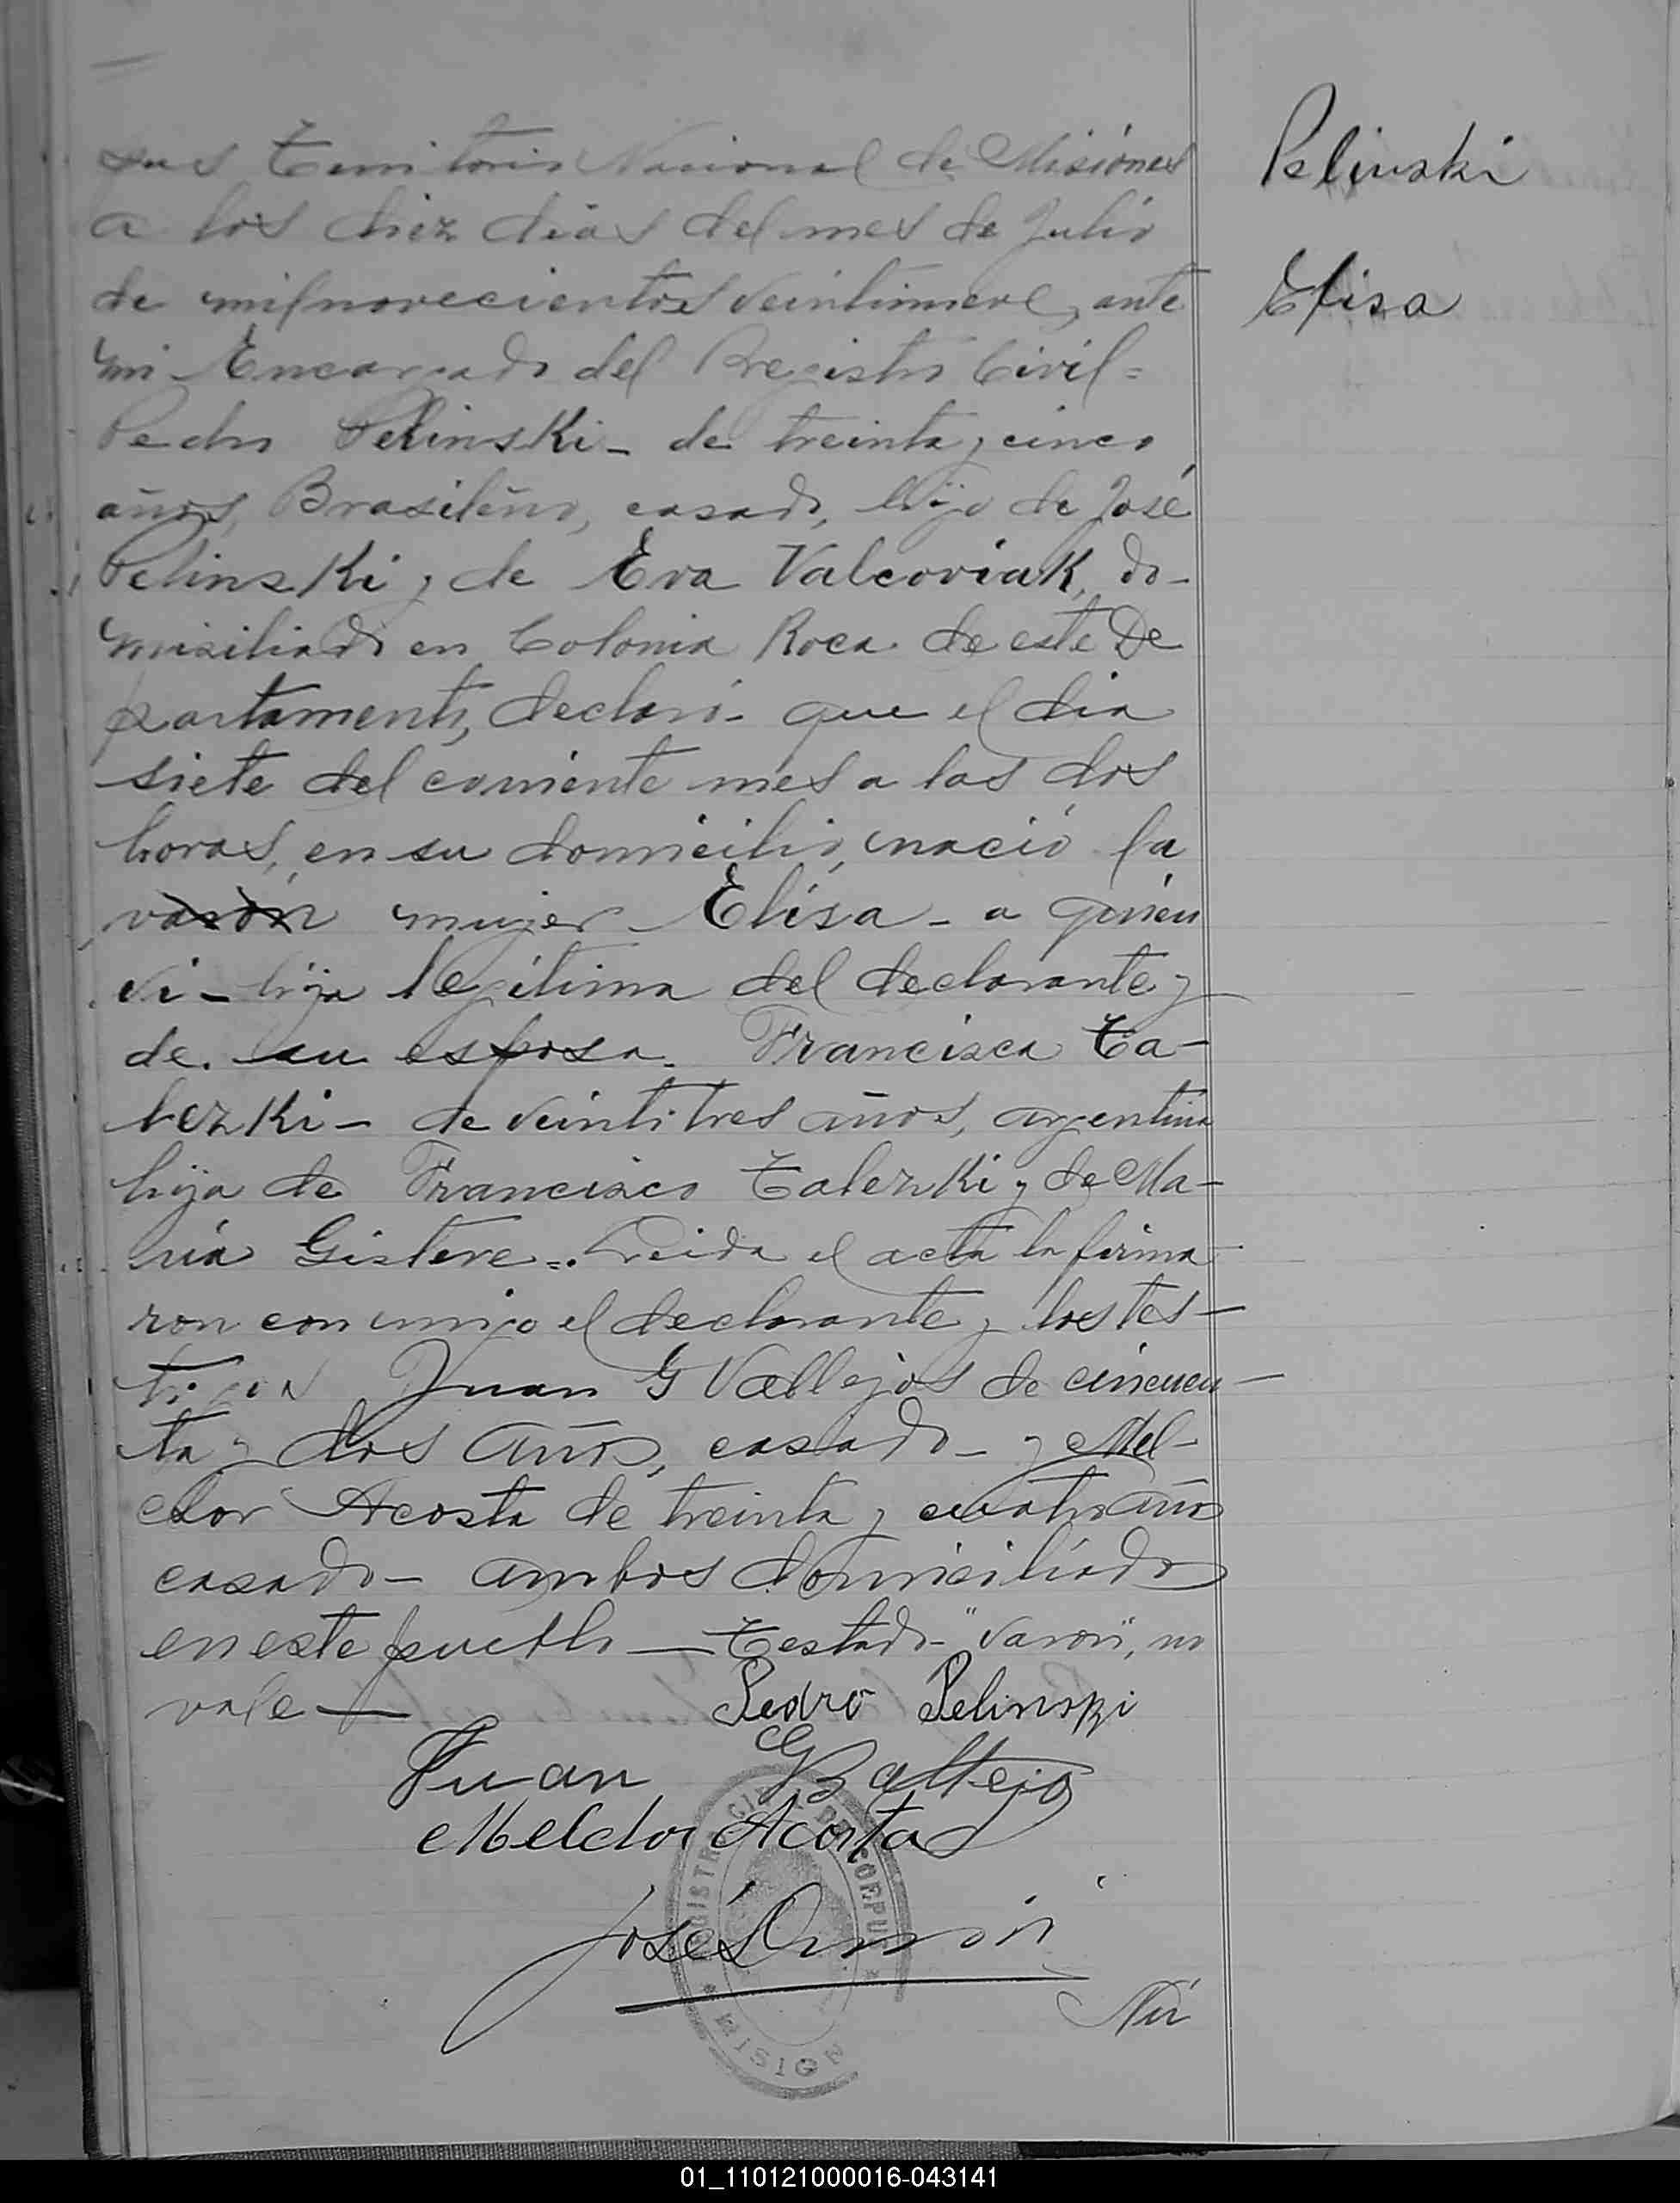 pus Territorio Nacional de Misiones
a los diez dias del mes de Julio
de milnovecientos veintinueve, ante
mi Encargado del Registro Civil=
Pedro Pelinski - de treinta y cinco
años, Brasileño, casado, hijo de José
Pelinski y de Eva Valcoviak, do-
misiliado en Colonia Roca de este De
partamento, declaró - que el dia
siete del corriente mes a las dos
horas, en su domicilio, nació la
varón mujer - Elisa - a quien
vi - hija legitima del declarante y
de su esposa Francisca Ta-
lezki - de veintitres años, argentina
hija de Francisco Talezki y de Ma-
ria Gistere =. Leida el acta la firma
ron con migo el declarante y los tes-
tigos Juan G Vallejos de cincuen-
ta y dos años, casado - y Mel-
chor Acosta de treinta y cuatro años
casado - ambos domiciliados
en este pueblo — Testado - "varón", no
vale —
Pedro Pelinski
Juan G Ballejos
Melchor Acosta
José
Nú
Pelinski
Elisa
MISION
01_110121000016-043141